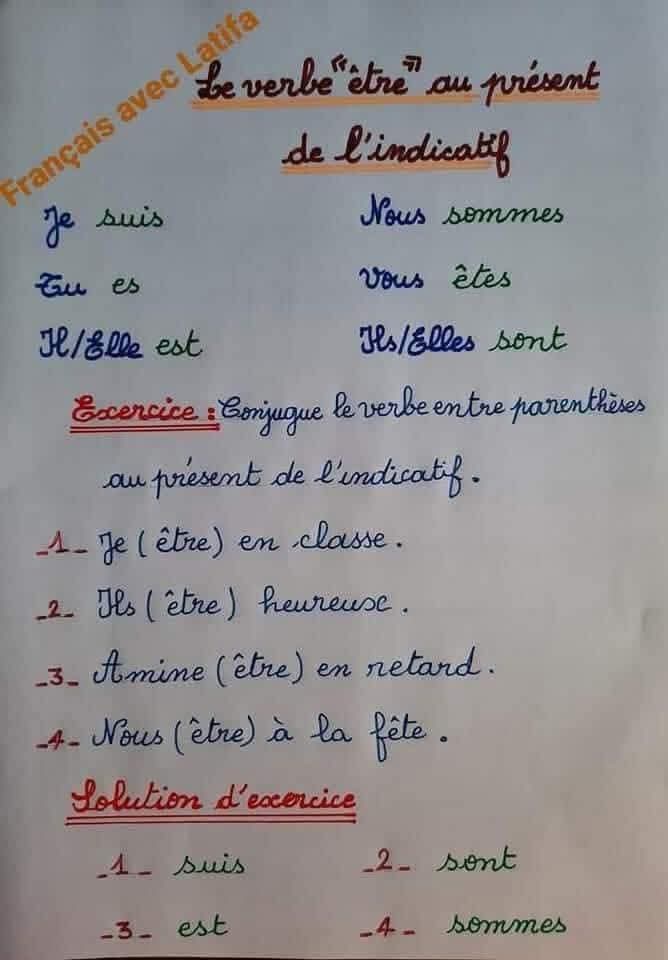 Français avec Latifa
Le verbe "être" au présent
de l'indicatif
Je suis
Nous sommes
Tu es
Vous êtes
Il/Elle est
Ils/Elles sont
Exercice : Conjugue le verbe entre parenthèses
au présent de l'indicatif.
_1_ Je (être) en classe.
_2_ Ils (être) heureux.
_3_ Amine (être) en retard.
_4_ Nous (être) à la fête.
Solution d'exercice
_1_ suis
_2_ sont
_3_ est
_4_ sommes